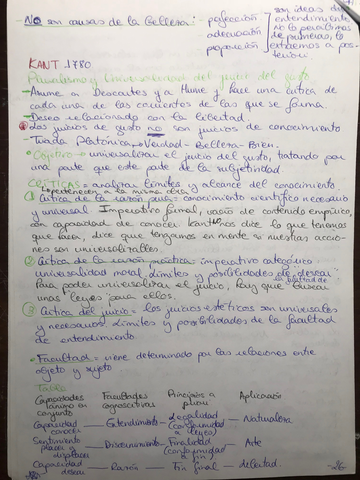 - No son causas de la belleza: - perfección
- adecuación
- proporción
son ideas del
entendimiento
no la percibimos
de primeras, lo
extraemos a pos-
teriori
KANT 1780
Pluralismo y Universalidad del juicio del gusto
- Asume a Descartes y a Hume y hace una crítica de
cada una de las corrientes de las que se forma.
- Deseo relacionado con la libertad.
Los juicios de gusto no son juicios de conocimiento
- Triada Platónica → Verdad - Belleza - Bien.
Objetivo → universalizar el juicio del gusto, tratando por
una parte que este parte de la subjetividad
CRÍTICAS = analizar límites y alcance del conocimiento
pertenecen a la misma obra
① Crítica de la razón pura = conocimiento científico necesario
y universal Imperativo formal, vacío de contenido empírico,
son capacidad de conocer. Kant nos dice lo que tenemos
que hacer, dice que tengamos en mente si nuestras accio-
nes son universalizables.
② Crítica de la razón práctica = imperativo categórico
universalidad moral, límites y posibilidades de desear
la facultad de
Para poder universalizar el juicio, hay que buscar
unas leyes para ellos.
③ Crítica del juicio = los juicios estéticos son universales
y necesarios, límites y posibilidades de la facultad
de entendimiento
- Facultad = viene determinado por las relaciones entre
objeto y sujeto
Tabla
Capacidades Facultades Principios a Aplicación
ánimo en cognoscitivas priori
conjunto
Capacidad — Entendimiento — Legalidad — Naturaleza
conocer (conformidad
a leyes)
Sentimiento — Discernimiento — Finalidad — Arte
placer o (conformidad
displacer a fin)
Capacidad — Razón — Fin final — Libertad
desear